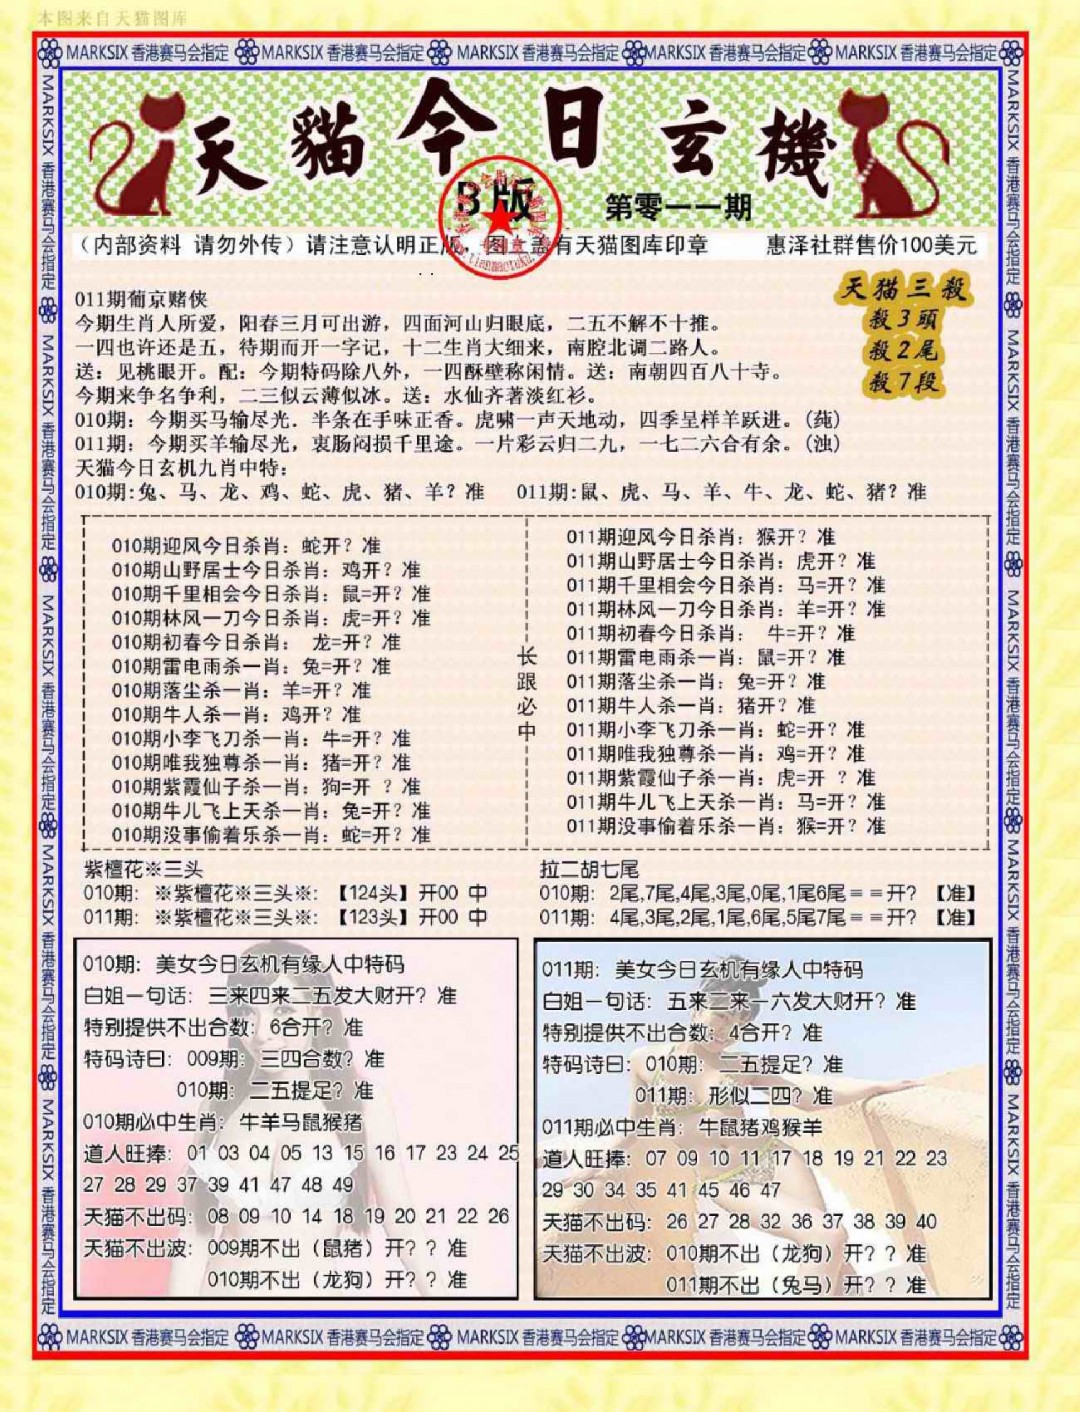 本图来自天猫图库
MARKSIX 香港赛马会指定 MARKSIX 香港赛马会指定 MARKSIX 香港赛马会指定 MARKSIX 香港赛马会指定 MARKSIX 香港赛马会指定
天猫今日玄機
B版
第零一一期
(内部资料 请勿外传)请注意认明正版,图上盖有天猫图库印章 惠泽社群售价100美元
天猫三殺
殺3頭
殺2尾
殺7段
011期葡京赌侠
今期生肖人所爱,阳春三月可出游,四面河山归眼底,二五不解不十推。
一四也许还是五,待期而开一字记,十二生肖大细来,南腔北调二路人。
送:见桃眼开。配:今期特码除八外,一四酥壁称闲情。送:南朝四百八十寺。
今期来争名争利,二三似云薄似冰。送:水仙齐著淡红衫。
010期:今期买马输尽光.半条在手味正香。虎啸一声天地动,四季呈样羊跃进。(莼)
011期:今期买羊输尽光,衷肠闷损千里途。一片彩云归二九,一七二六合有余。(浊)
天猫今日玄机九肖中特:
010期:兔、马、龙、鸡、蛇、虎、猪、羊?准 011期:鼠、虎、马、羊、牛、龙、蛇、猪?准
010期迎风今日杀肖:蛇开?准
010期山野居士今日杀肖:鸡开?准
010期千里相会今日杀肖:鼠=开?准
010期林风一刀今日杀肖:虎=开?准
010期初春今日杀肖: 龙=开?准
010期雷电雨杀一肖:兔=开?准
010期落尘杀一肖:羊=开?准
010期牛人杀一肖:鸡开?准
010期小李飞刀杀一肖:牛=开?准
010期唯我独尊杀一肖:猪=开?准
010期紫霞仙子杀一肖:狗=开 ?准
010期牛儿飞上天杀一肖:兔=开?准
010期没事偷着乐杀一肖:蛇=开?准
长跟必中
011期迎风今日杀肖:猴开?准
011期山野居士今日杀肖:虎开?准
011期千里相会今日杀肖:马=开?准
011期林风一刀今日杀肖:羊=开?准
011期初春今日杀肖: 牛=开?准
011期雷电雨杀一肖:鼠=开?准
011期落尘杀一肖:兔=开?准
011期牛人杀一肖:猪开?准
011期小李飞刀杀一肖:蛇=开?准
011期唯我独尊杀一肖:鸡=开?准
011期紫霞仙子杀一肖:虎=开 ?准
011期牛儿飞上天杀一肖:马=开?准
011期没事偷着乐杀一肖:猴=开?准
紫檀花※三头
010期: ※紫檀花※三头※: 【124头】开00 中
011期: ※紫檀花※三头※: 【123头】开00 中
拉二胡七尾
010期: 2尾,7尾,4尾,3尾,0尾,1尾6尾==开? 【准】
011期: 4尾,3尾,2尾,1尾,6尾,5尾7尾==开? 【准】
010期:美女今日玄机有缘人中特码
白姐一句话:三来四来二五发大财开?准
特别提供不出合数:6合开?准
特码诗曰:009期:三四合数?准
010期:二五提足?准
010期必中生肖:牛羊马鼠猴猪
道人旺捧:01 03 04 05 13 15 16 17 23 24 25
27 28 29 37 39 41 47 48 49
天猫不出码:08 09 10 14 18 19 20 21 22 26
天猫不出波:009期不出(鼠猪)开??准
010期不出(龙狗)开??准
011期:美女今日玄机有缘人中特码
白姐一句话:五来二来一六发大财开?准
特别提供不出合数:4合开?准
特码诗曰:010期:二五提足?准
011期:形似二四?准
011期必中生肖:牛鼠猪鸡猴羊
道人旺捧:07 09 10 11 17 18 19 21 22 23
29 30 34 35 41 45 46 47
天猫不出码:26 27 28 32 36 37 38 39 40
天猫不出波:010期不出(龙狗)开??准
011期不出(兔马)开??准
MARKSIX 香港赛马会指定 MARKSIX 香港赛马会指定 MARKSIX 香港赛马会指定 MARKSIX 香港赛马会指定 MARKSIX 香港赛马会指定